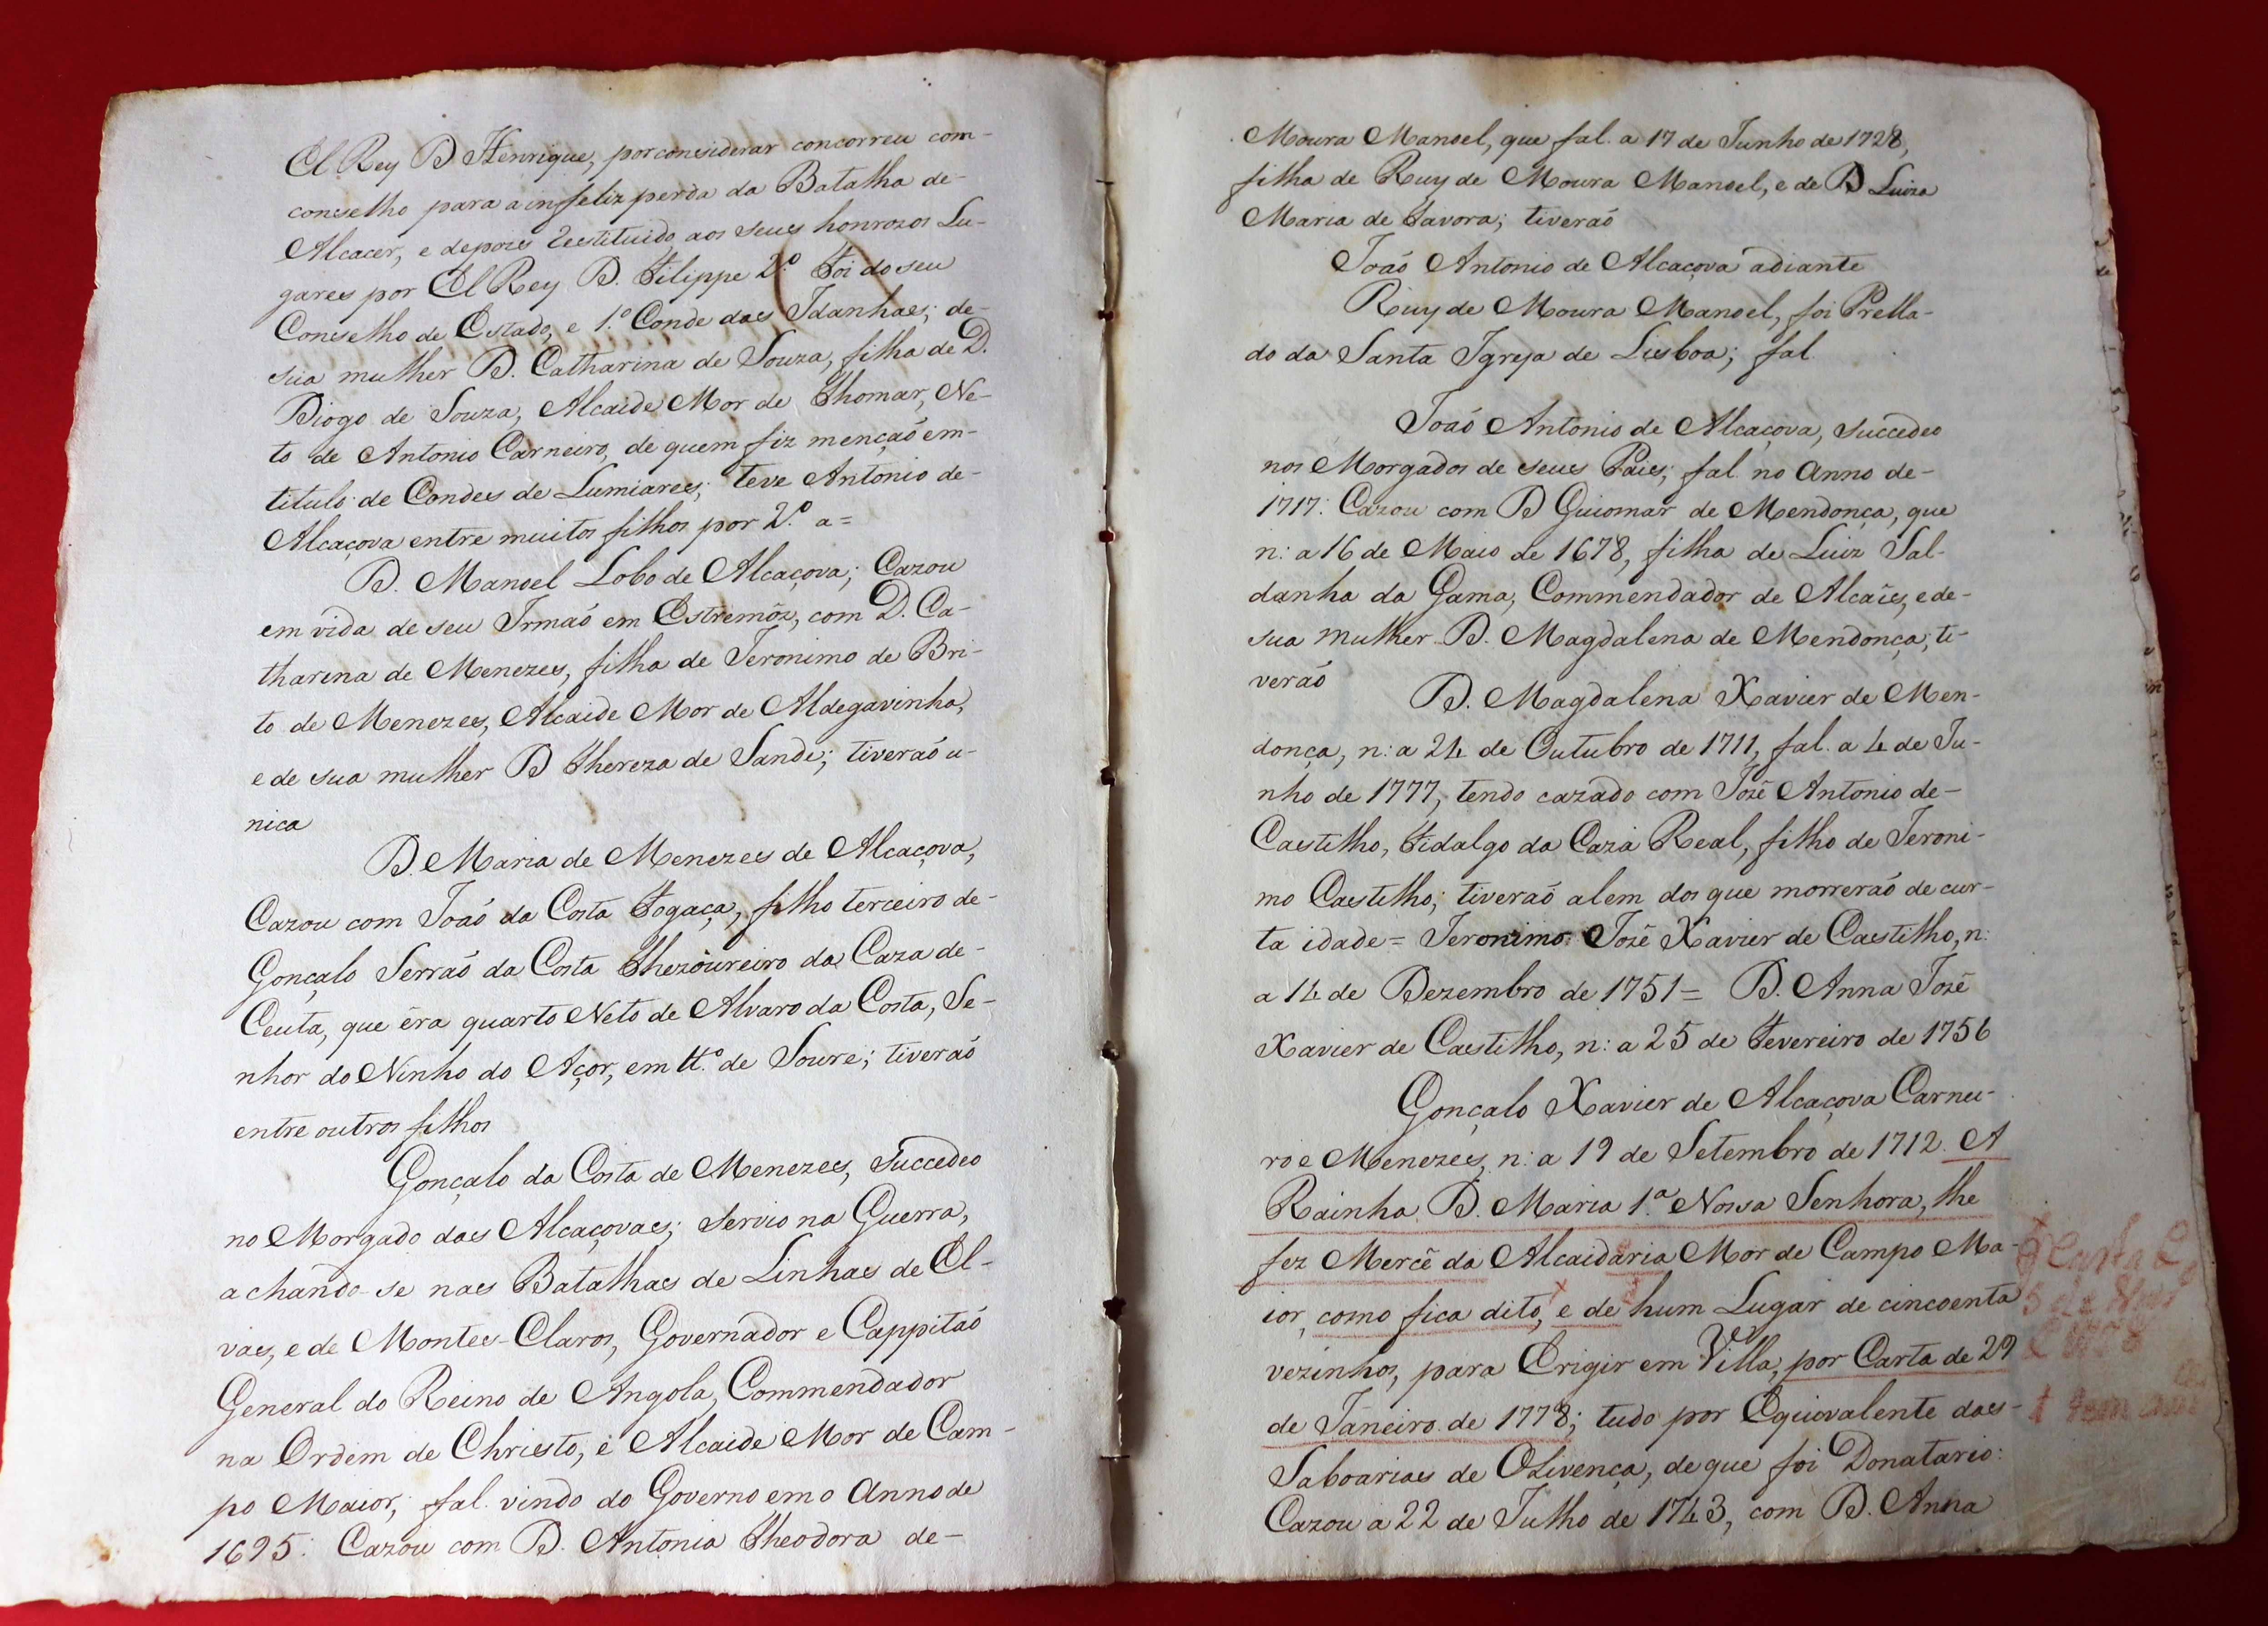 El Rey D Henrique, por considerar concorreu com-
conselho para a infeliz perda da Batalha de-
Alcacer, e depois Restituido aos seus honrozos Lu-
gares por El Rey D. Filippe 2.º Foi do seu
Conselho de Estado, e 1.º Conde das Idanhas; de-
sua mulher D. Catharina de Souza, filha de D.
Diogo de Souza, Alcaide Mor de Thomar, Ne-
to de Antonio Carneiro, de quem fiz mençaõ em-
titulo de Condes de Lumiares; teve Antonio de-
Alcaçova entre muitos filhos por 2.º a=
D. Manoel Lobo de Alcaçova; Cazou
em vida de seu Irmaõ em Estremôz, com D. Ca-
tharina de Menezes, filha de Jeronimo de Bri-
to de Menezes, Alcaide Mor de Aldegavinha,
e de sua mulher D Thereza de Sande; tiveraõ u-
nica
D. Maria de Menezes de Alcaçova,
Cazou com Joaõ da Costa Fogaça, filho terceiro de-
Gonçalo Serraõ da Costa Thezoureiro da Caza de-
Ceuta, que éra quarto Neto de Alvaro da Costa, Se-
nhor do Ninho do Açor, em tt.º de Soure; tiveraõ
entre outros filhos
Gonçalo da Costa de Menezes, Succedeo
no Morgado das Alcaçovas; Servio na Guerra,
achando-se nas Batalhas de Linhas de El-
vas, e de Montes-Claros, Governador e Cappitaõ
General do Reino de Angola, Commendador
na Ordem de Christo, e Alcaide Mor de Cam-
po Maior; fal. vindo do Governo em o Anno de
1695: Cazou com D. Antonia Theodora de-
Moura Manoel, que fal. a 17 de Junho de 1728,
filha de Ruy de Moura Manoel, e de D Luiza
Maria de Tavora; tiveraõ
Joaõ Antonio de Alcaçova adiante
Ruy de Moura Manoel, foi Prella-
do da Santa Igreja de Lisboa; fal.
Joaõ Antonio de Alcaçova, Succedeo
nos Morgados de seus Paes; fal. no Anno de-
1717: Cazou com D Guiomar de Mendonça, que
n: a 16 de Maio de 1678, filha de Luiz Sal-
danha da Gama, Commendador de Alcaîs, e de-
sua mulher D. Magdalena de Mendonça; ti-
veraõ
D. Magdalena Xavier de Men-
donça, n: a 24 de Outubro de 1711, fal. a 4 de Ju-
nho de 1777, tendo cazado com José Antonio de-
Castilho, Fidalgo da Caza Real, filho de Jeroni-
mo Castilho; tiveraõ alem dos que morreraõ de cur-
ta idade= Jeronimo José Xavier de Castilho, n:
a 14 de Dezembro de 1751= D. Anna José
Xavier de Castilho, n: a 25 de Fevereiro de 1756
Gonçalo Xavier de Alcaçova Carnei-
ro e Menezes, n: a 19 de Setembro de 1712. A
Rainha D. Maria 1.ª Nossa Senhora, lhe
fez Mercê da Alcaidaria Mór de Campo Ma-
ior, como fica dito, e de hum Lugar de cincoenta
vezinhos, para Erigir em Villa, por Carta de 29
de Janeiro de 1778; tudo por Equivalente das-
Saboarias de Olivença, de que foi Donatario:
Cazou a 22 de Julho de 1743, com D. Anna